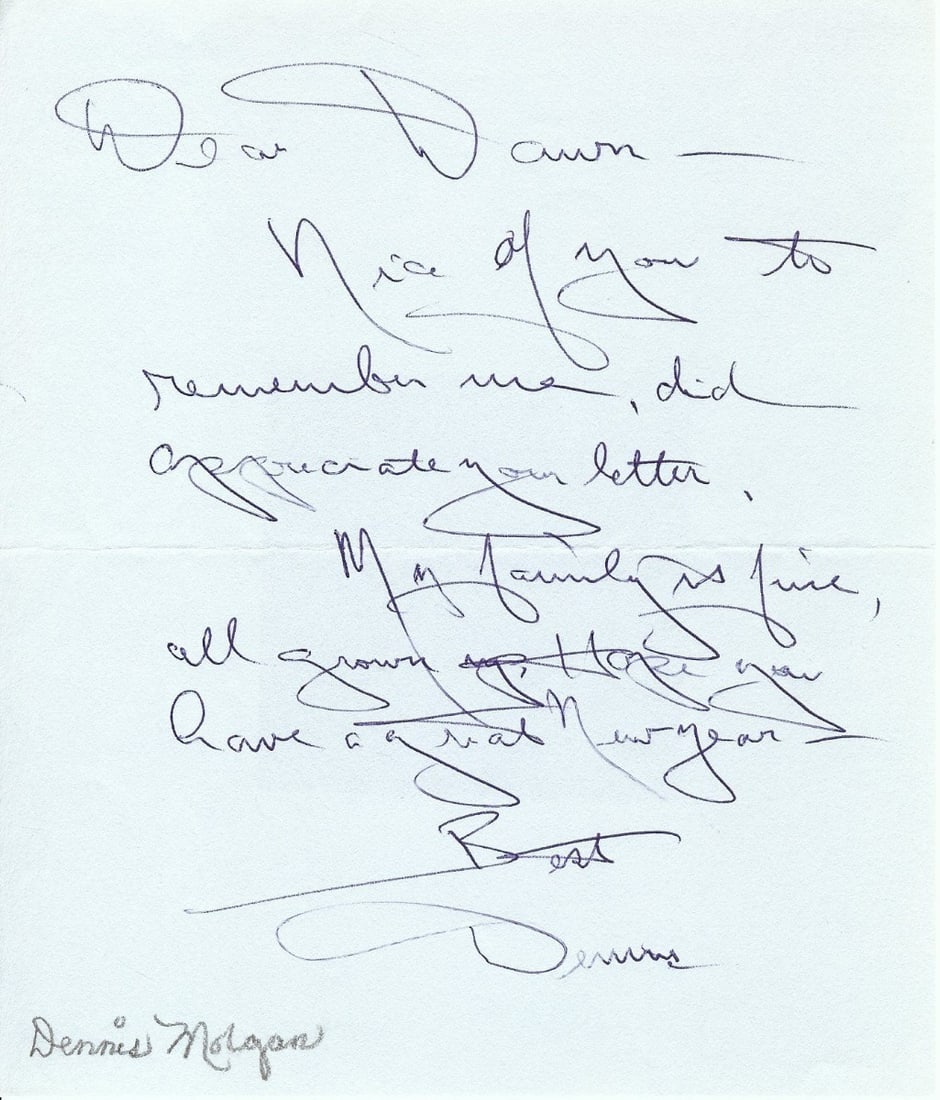 Dear Dawn —
Nice of you to
remember me, did
appreciate your letter.
My family is fine,
all grown up, Hope you
have a great New year —
Best
Dennis
Dennis Morgan